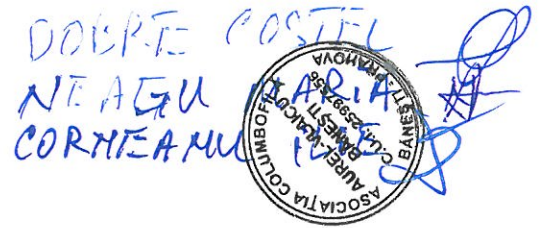 DOBRE COSTEL
NEAGU MARIA
CORNEANU ILIE
ASOCIAȚIA COLUMBOFILĂ
BĂNEȘTI - PRAHOVA
AUREL VLAICU
BĂNEȘTI
C.U.I.